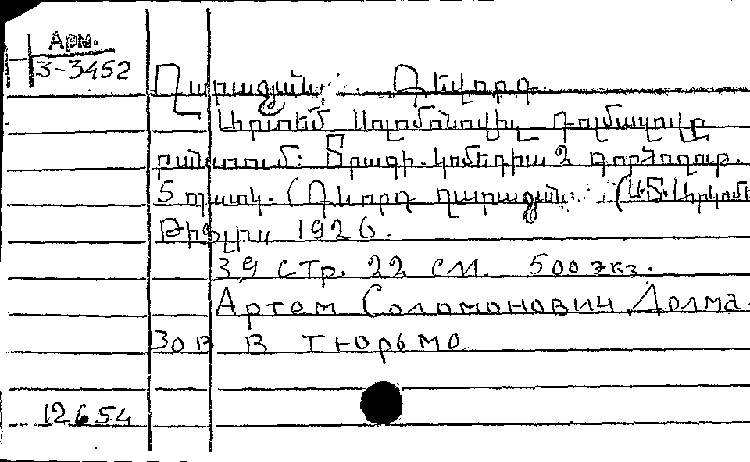 Арм.
3-3452
Ղարաջյան Գևորգ
Արտեմ Սոլոմոնովիչ Դոլմազովը
բանտում: Տրագի-կոմեդիա 2 գործողութ.
5 պատկ. (Գևորգ Ղարաջյան
Թիֆլիս 1926.
39 стр. 22 см. 500 экз.
Артем Соломонович Долма-
зов в тюрьме
12654